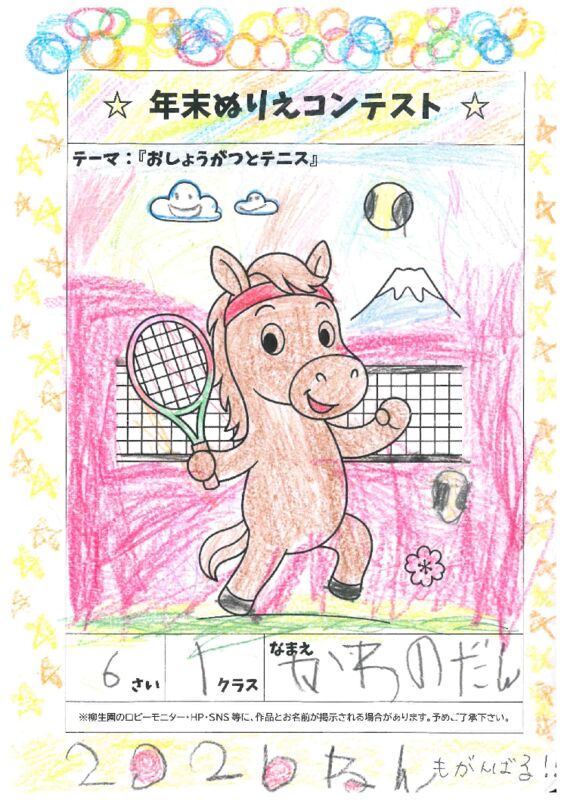 ☆ 年末ぬりえコンテスト ☆
テーマ：『おしょうがつとテニス』
6さい 1クラス なまえ かわのだん
※柳生園のロビーモニター・HP・SNS等に、作品とお名前が掲示される場合があります。予めご了承下さい。
2026ねん もがんばる!!